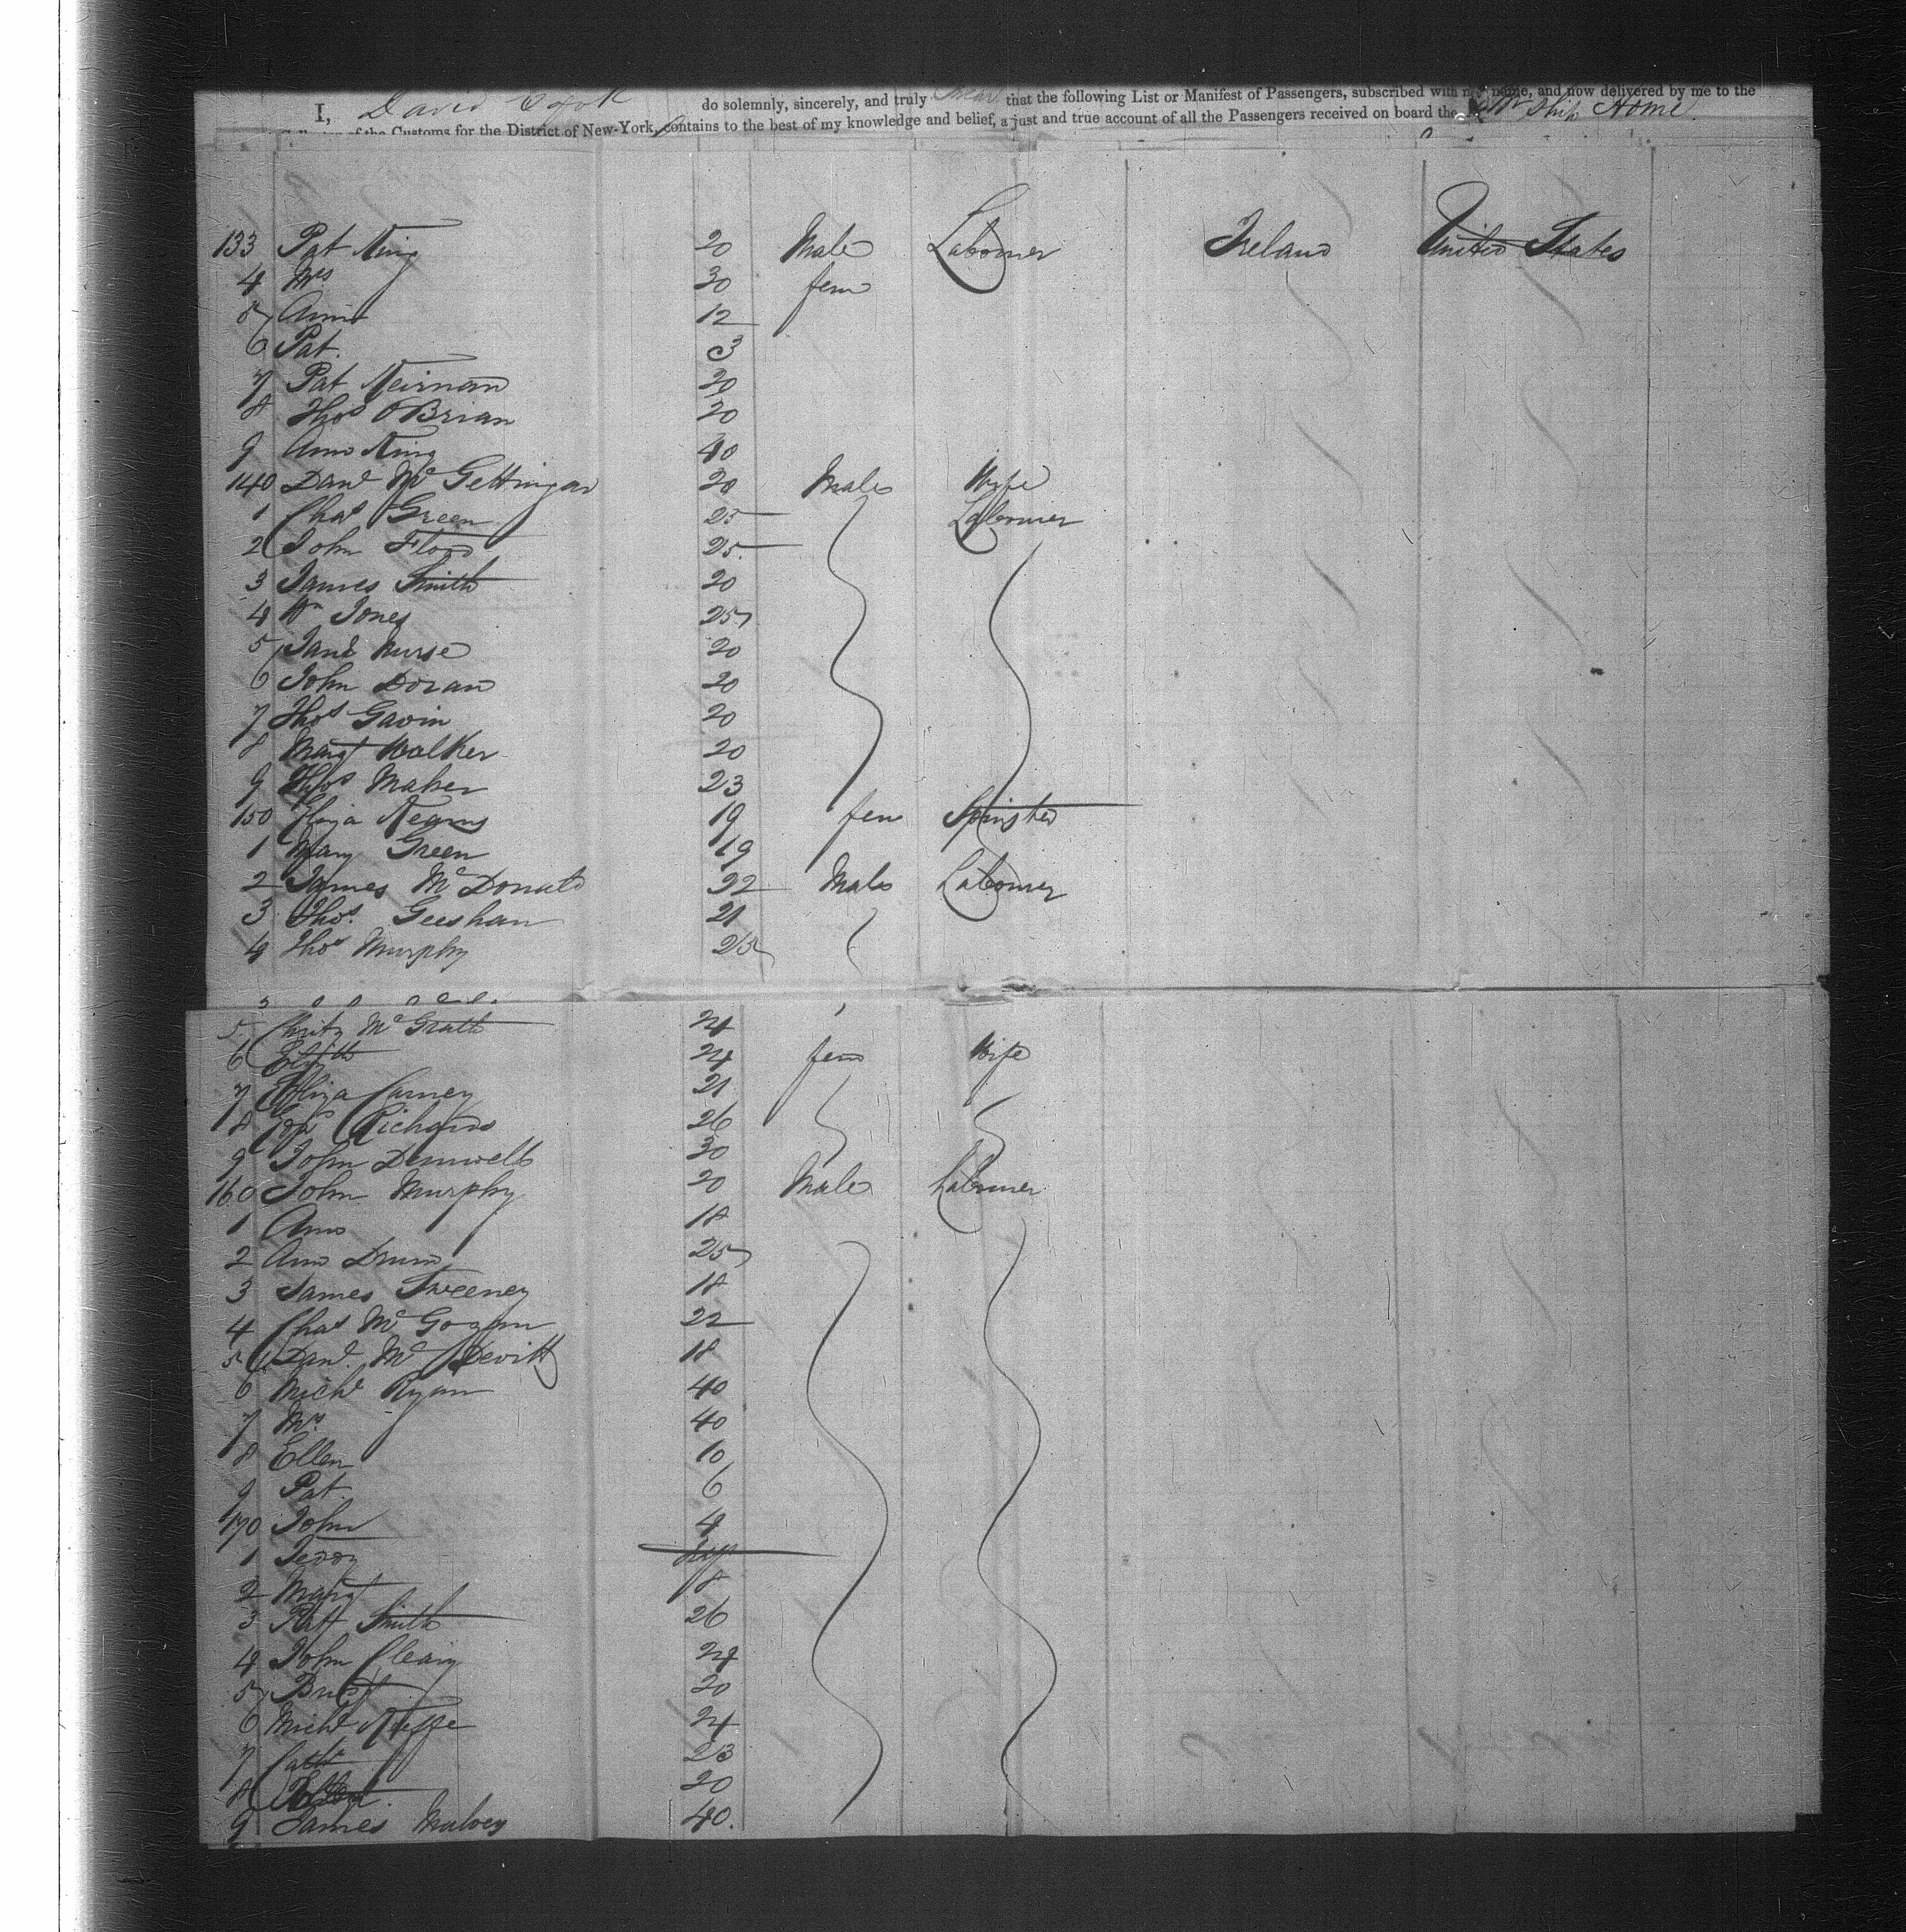 I, David Cook do solemnly, sincerely, and truly swear that the following List or Manifest of Passengers, subscribed with my name, and now delivered by me to the
of the Customs for the District of New-York, contains to the best of my knowledge and belief, a just and true account of all the Passengers received on board the Ship Home
133 Pat King 20 Male Labourer Ireland United States
4 Mrs 30 fem
5 Ann 12
6 Pat. 3
7 Pat Keirnan 20
8 Thos O'Brian 20
9 Ann King 40
140 Danl McGettingan 20 Male Wife
1 Chas Green 25 Labourer
2 John Flood 25
3 James Smith 20
4 Wm Jones 25
5 Jane Nurse 20
6 John Doran 20
7 Thos Gavin 20
8 Margt Walker 20
9 Thos Maher 23
150 Eliza Kearns 19 fem Spinster
1 Mary Green 19
2 James McDonald 22 Male Labourer
3 Thos. Geeshan 21
4 Thos Murphy 25
5 McGrath 24
6 24 fem Wife
7 Eliza Carney 21
8 Richards 26
9 John 30
160 John Murphy 20 Male Labourer
1 Ann 18
2 Ann Drum 25
3 James Sweeney 18
4 Chas McGogan 22
5 Danl. McDevitt 18
6 Michl Ryan 40
7 Mrs 40
8 Ellen 10
9 Pat 6
170 John 4
1 Teddy Inf
2 Margt 8
3 Patt Smith 26
4 John Cleary 24
5 Bridgt 20
6 Michl Keeffe 24
7 Cath 23
8 20
9 James Mulvey 40.